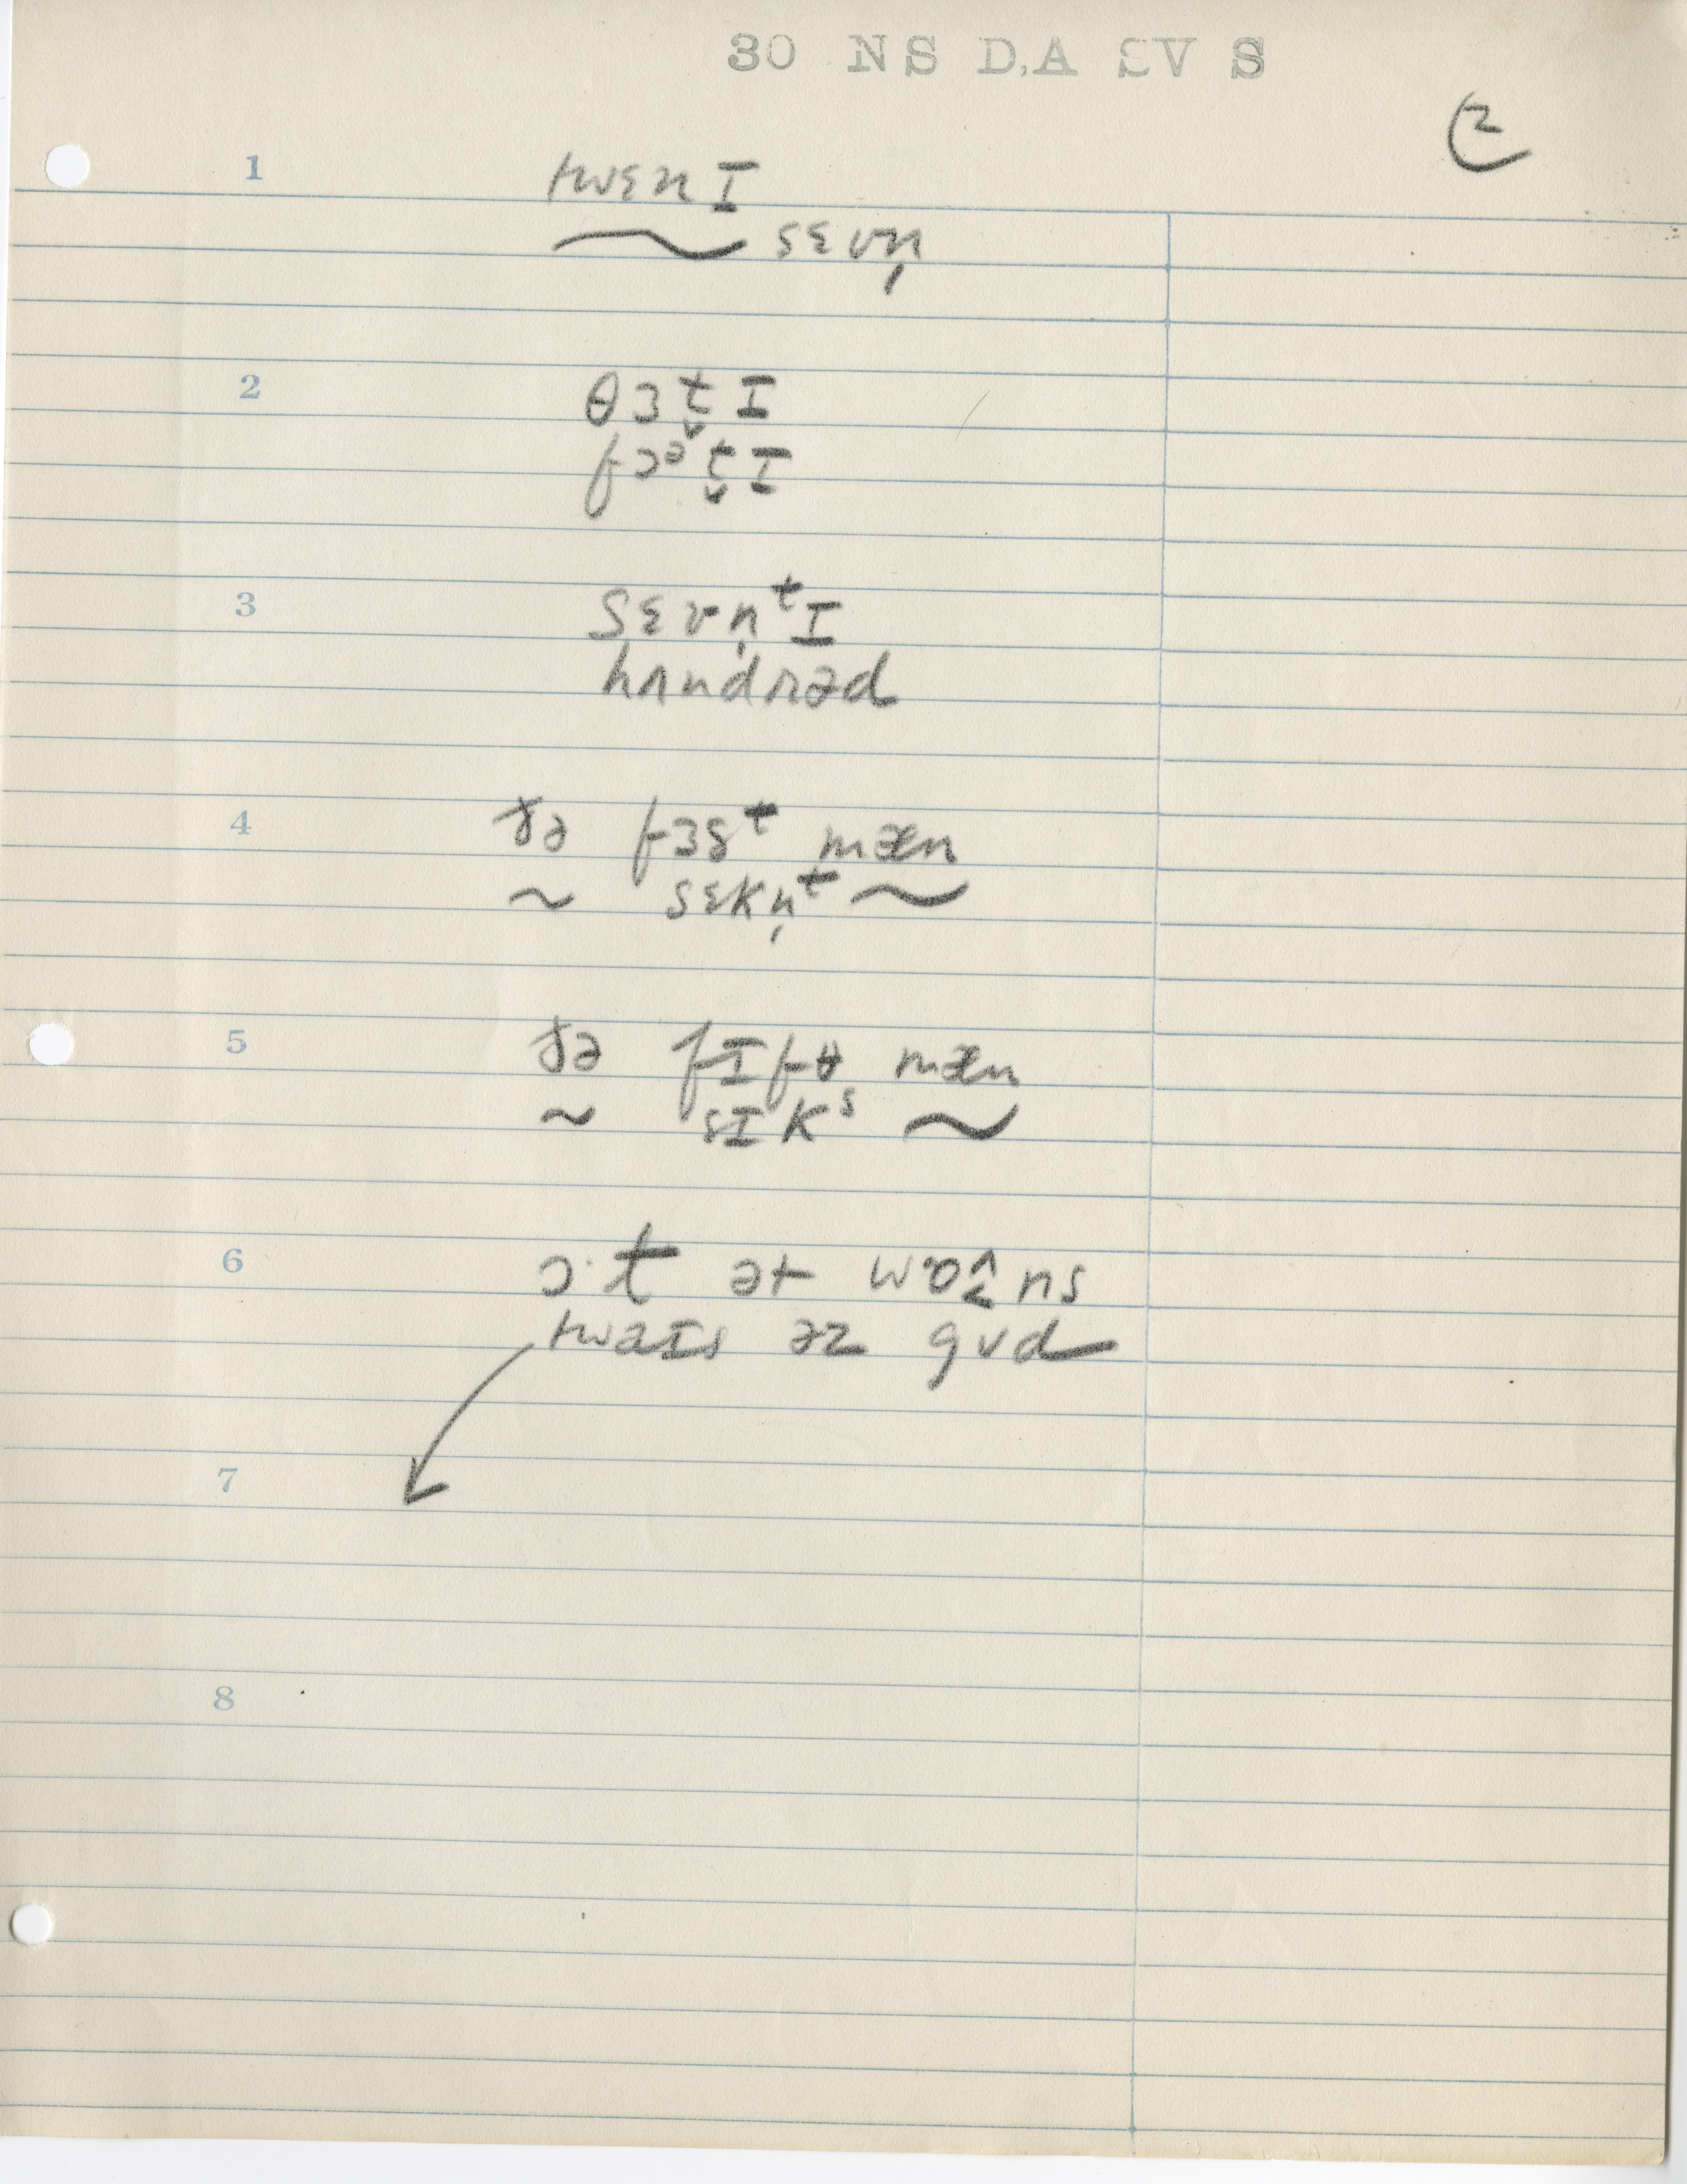 30 NS D.A SV S
2
1 twɛnɪ
~ sɛvn̩
2 θɜt̬ɪ
fɔᵊt̬ɪ
3 sɛvn̩ᵗɪ
hʌndrəd
4 ðə fɜsᵗ mæn
~ sɛkn̩ᵗ ~
5 ðə fɪfθ mæn
~ sɪkˢ ~
6 ɔ·t ət wʌns
twaɪs əz gʊd
7
8